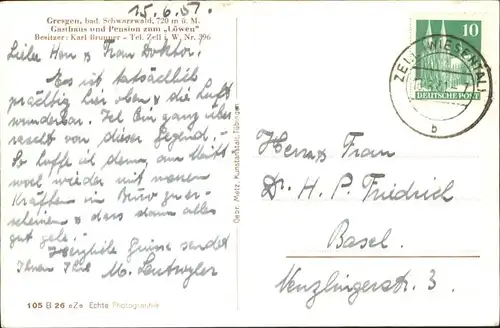 15.6.51.
Gresgen, bad. Schwarzwald, 720 m ü. M.
Gasthaus und Pension zum „Löwen"
Besitzer: Karl Brunner - Tel. Zell i. W. Nr. 396
Liebe Herr & Frau Doktor!
Es ist tatsächlich
prächtig hier oben & die Luft
wunderbar. Ich bin ganz über
rascht von dieser Gegend.
So hoffe ich denn, am
wohl wieder mit neuen
Kräften im Büro zu er-
scheinen & dass dann alles
gut gehe.
Herzliche Grüsse sendet
Ihnen Ihre
Gebr. Metz, Kunstanstalt, Tübingen
105 B 26 eZe Echte Photographie
10
DEUTSCHE POST
ZELL (WIESENTAL)
b
Herrn & Frau
Dr. H. P. Friedrich
Basel.
Venzlingerstr. 3.